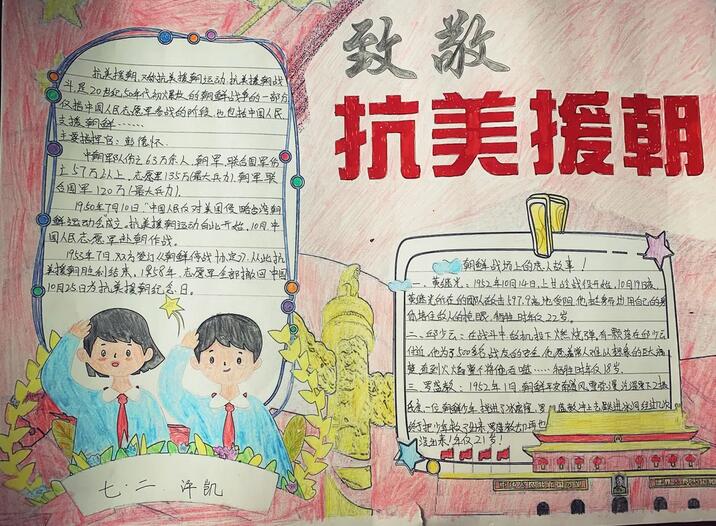 致敬
抗美援朝
抗美援朝,又称抗美援朝运动.抗美援朝战
斗是20世纪50年代初爆发的朝鲜战争的一部分
仅指中国人民志愿军参战的阶段,也包括中国人民
支援朝鲜……
主要指挥官:彭德怀.
中朝军队伤亡63万余人,朝军,联合国军伤
亡57万以上,志愿军135万(最大兵力),朝军,联
合国军120万(最大兵力).
1950年7月10日,"中国人民反对美国侵略台湾朝
鲜运动会成立,抗美援朝运动自此开始,10月中
国人民志愿军赴朝作战.
1953年7月,双方签订《朝鲜停战协定》,从此抗
美援朝胜利结束,1958年,志愿军全部撤回中国
10月25日为抗美援朝纪念日.
七.二 许凯
朝鲜战场上的感人故事!
一、黄继光:1952年10月14日,上甘岭战役开始,10月19夜,
黄继光所在的团队攻击597.9高地受阻,他挺身而出用自己的身
体堵住敌人的枪眼,牺牲时年仅22岁.
二、邱少云:在战斗中敌机投下燃烧弹,有一颗落在邱少云
他为了500多名战友的安全,
直到火 牺牲时年仅18岁.
三、罗盛教:1952年1月,朝鲜
一位朝鲜少年
年仅21岁!